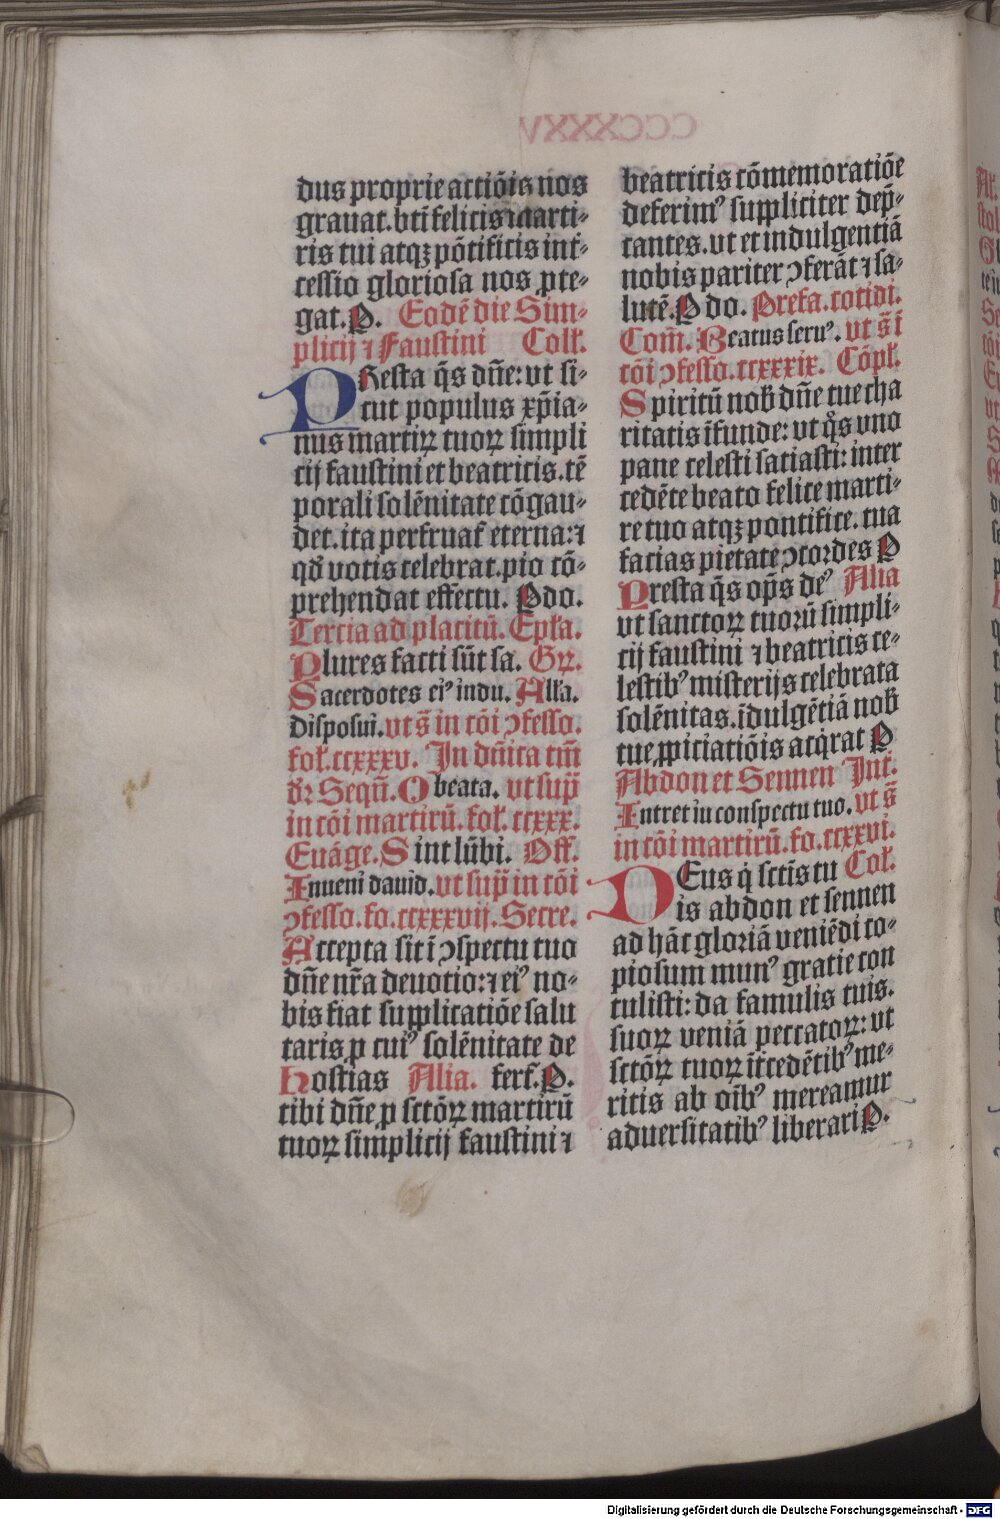 dus proprie actiōis nos
grauat. bti̅ felicis marti⸗
ris tui atqꝫ pōtificis int̄⸗
cessio gloriosa nos ꝓte⸗
gat. P. Eodē die Sim⸗
plicij ⁊ Faustini Coll̄.
PResta q̄s dn̄e: vt si⸗
cut populus xp̄ia⸗
nus martirꝝ tuoꝝ simpli
cij faustini et beatricis. tē
porali solēnitate cōgau⸗
det. ita perfruat̄ eterna: ⁊
qd̄ votis celebrat. pio cō⸗
prehendat effectu. P do.
Tercia ad placitū. Epl̄a.
Plures facti sūt sa. Gꝝ.
Sacerdotes eiꝰ indu. All̄a.
Disposui. vt s̄ in cōi ↄfesso.
fol̄. ccxxxv. In dn̄ica tm̄
dr̄ Seqn̄. O beata. vt sup̄
in cōi martirū. fol̄. ccxxx.
Euāge. Sint lūbi. Off.
Inueni dauid. vt sup̄ in cōi
ↄfesso. fo. ccxxxvij. Secre.
Accepta sit ī ↄspectu tuo
dn̄e nr̄a deuotio: ⁊ eiꝰ no⸗
bis fiat supplicatiōe salu
taris ꝓ cuiꝰ solēnitate de
Hostias Alia. fert̄. P.
tibi dn̄e ꝓ sctōꝝ martirū
tuoꝝ simplicij faustini ⁊
beatricis cōmemoratiōe
deferimꝰ suppliciter dep̄⸗
cantes. vt et indulgentiā
nobis pariter ↄferāt ⁊ sa⸗
lutē. P do. Prefa. cotidi.
Com̄. Beatus seruꝰ. vt s̄ ī
cōi ↄfesso. ccxxxix. Cōpl̄.
Spiritū nob̄ dn̄e tue cha
ritatis īfunde: vt q̊s vno
pane celesti satiasti: inter
cedēte beato felice marti⸗
re tuo atqꝫ pontifice. tua
facias pietate ↄcordes P
Presta q̄s op̄s deꝰ Alia
vt sanctoꝝ tuorū simpli⸗
cij faustini ⁊ beatricis ce⸗
lestibꝰ misterijs celebrata
solēnitas. īdulgētiā nob̄
tue ꝓpiciatiōis acq̇rat P
Abdon et Sennen Int̄.
Intret in conspectu tuo. vt s̄
in cōi martirū. fo. ccxxvi.
DEus q̇ sctīs tu Col̄.
is abdon et sennen
ad hāc gloriā veniēdi co⸗
piosum munꝰ gratie con
tulisti: da famulis tuis.
suoꝝ veniā peccatoꝝ: vt
sctōꝝ tuoꝝ īt̄cedētibꝰ me⸗
ritis ab oībꝰ mereamur
aduersitatibꝰ liberari P.
Digitalisierung gefördert durch die Deutsche Forschungsgemeinschaft - DFG